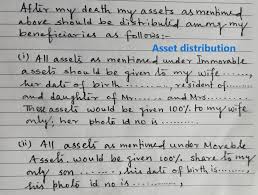 After my death my assets as mentioned
above should be distributed among my
beneficiaries as follows:-
Asset distribution
(i) All assets as mentioned under Immovable
assets should be given to my wife ......,
her date of birth .........., resident of......
and daughter of Mr...... and Mrs......
These assets would be given 100% to my wife
only, her photo id no is ..........
(ii) All assets as mentioned under Movable
Assets. would be given 100% share to my
only son ......., his date of birth is........,
his photo id no is ...........,